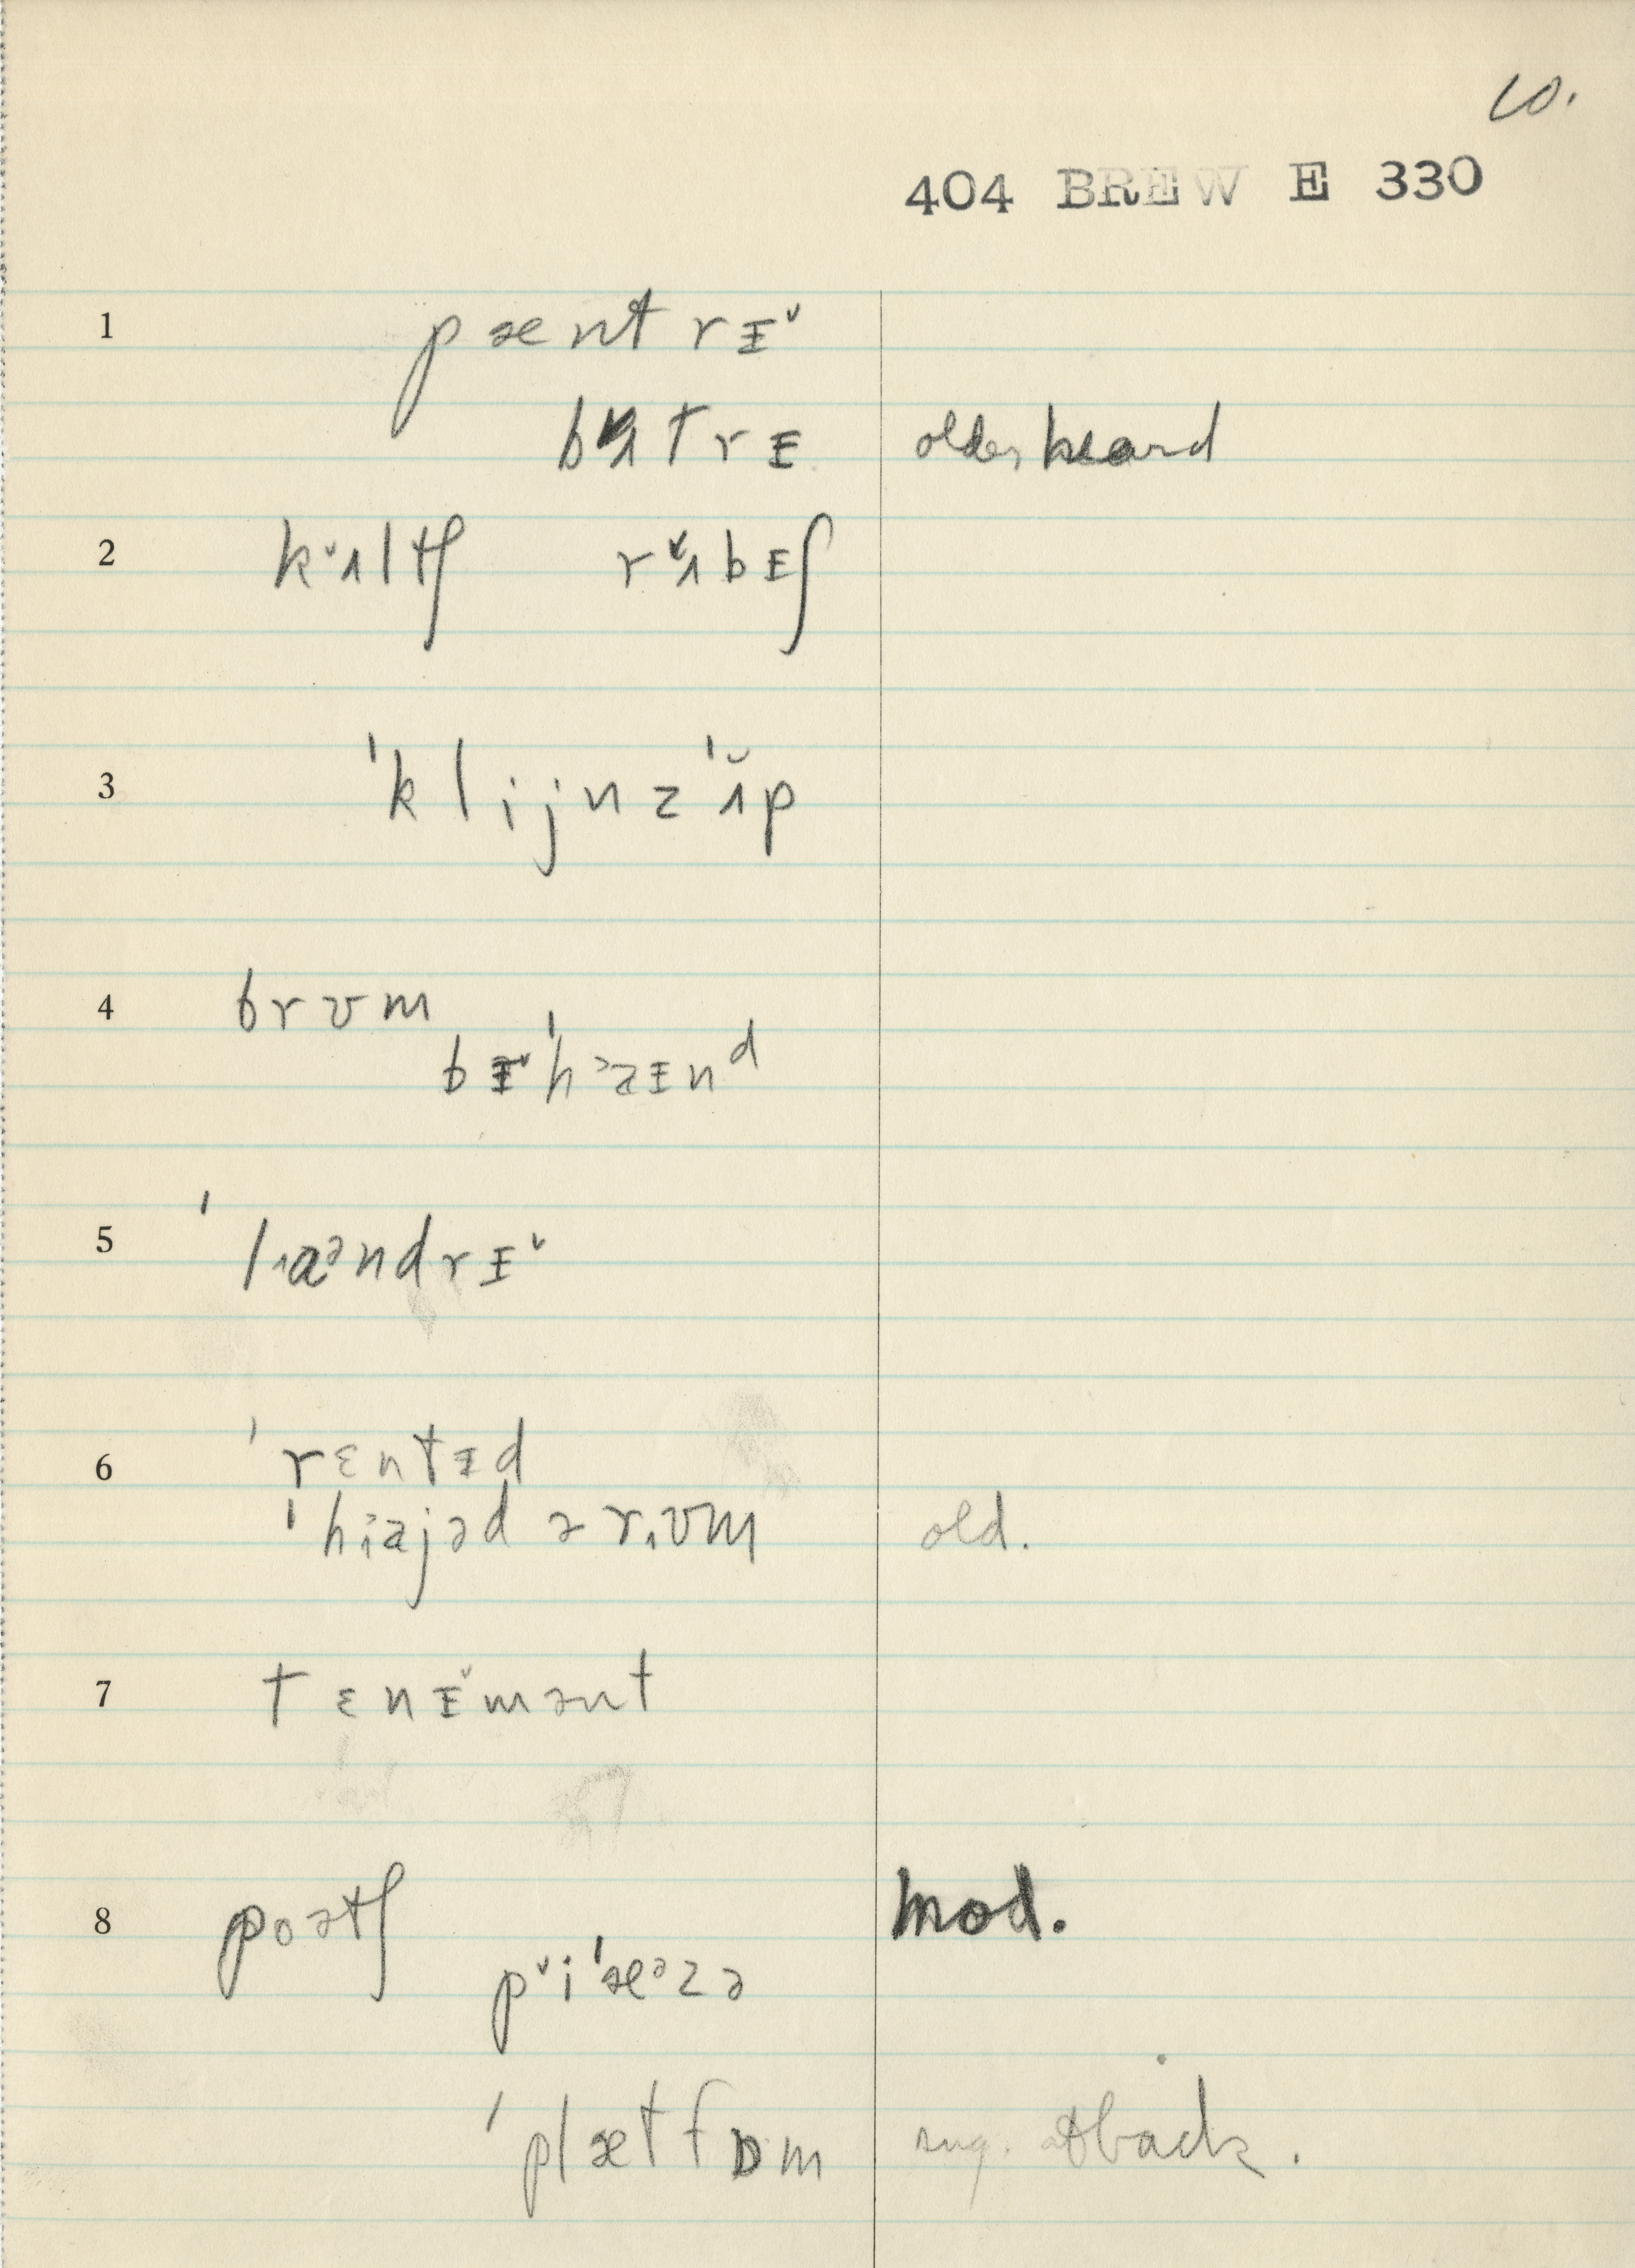 10.
404 BREW E 330
1 pæntrɪ˅
bʌtrɪ older, heard
2 k˅ʌltʃ r˅ʌbɪʃ
3 ˈklijnzˈʌ̆p
4 brʊm
bɪ˅ˈh˃aɪnᵈ
5 ˈlɑᵊndrɪ˅
6 ˈrɛntɪd
ˈhiajəd ə rʊm old.
7 tɛnɪ˅mənt
8 poətʃ mod.
p˅iˈæᵊzə
ˈplætfɒm sug. at back.